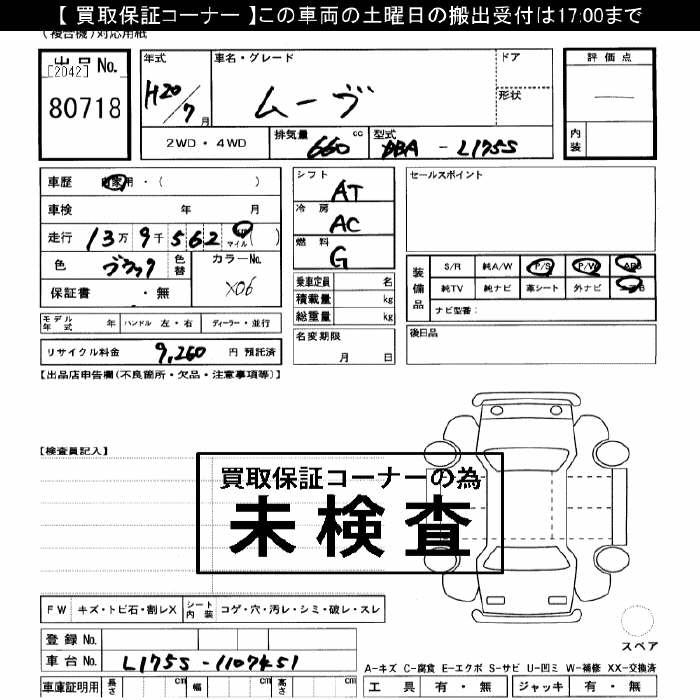 【 買取保証コーナー 】この車両の土曜日の搬出受付は17:00まで
(複合機)対応用紙
出品 No.
[2042]
80718
年式
H20/7月
車名・グレード
ムーヴ
ドア
形状
評価点
内装
2WD・4WD
排気量 660 cc
型式 DBA - L175S
車歴 自家用・( )
車検 年 月
走行 13万9千562 マイル( )
色 ブラック
色替
カラーNo.
X06
保証書 ・無
モデル年式 年
ハンドル 左・右
ディーラー・並行
リサイクル料金 9,260 円 預託済
シフト AT
冷房 AC
燃料 G
乗車定員 名
積載量 kg
総重量 kg
名変期限
月 日
セールスポイント
装備品
S/R 純A/W P/S P/W ABS
純TV 純ナビ 革シート 外ナビ
ナビ型番:
後日品
【出品店申告欄(不良箇所・欠品・注意事項等)】
【検査員記入】
買取保証コーナーの為
未検査
FW キズ・トビ石・割レX
シート内装 コゲ・穴・汚レ・シミ・破レ・スレ
スペア
登録 No.
車台 No. L175S-1107451
A-キズ C-腐食 E-エクボ S-サビ U-凹ミ W-補修 XX-交換済
車庫証明用 長さ cm 幅 cm 高さ cm
工具 有・無 ジャッキ 有・無